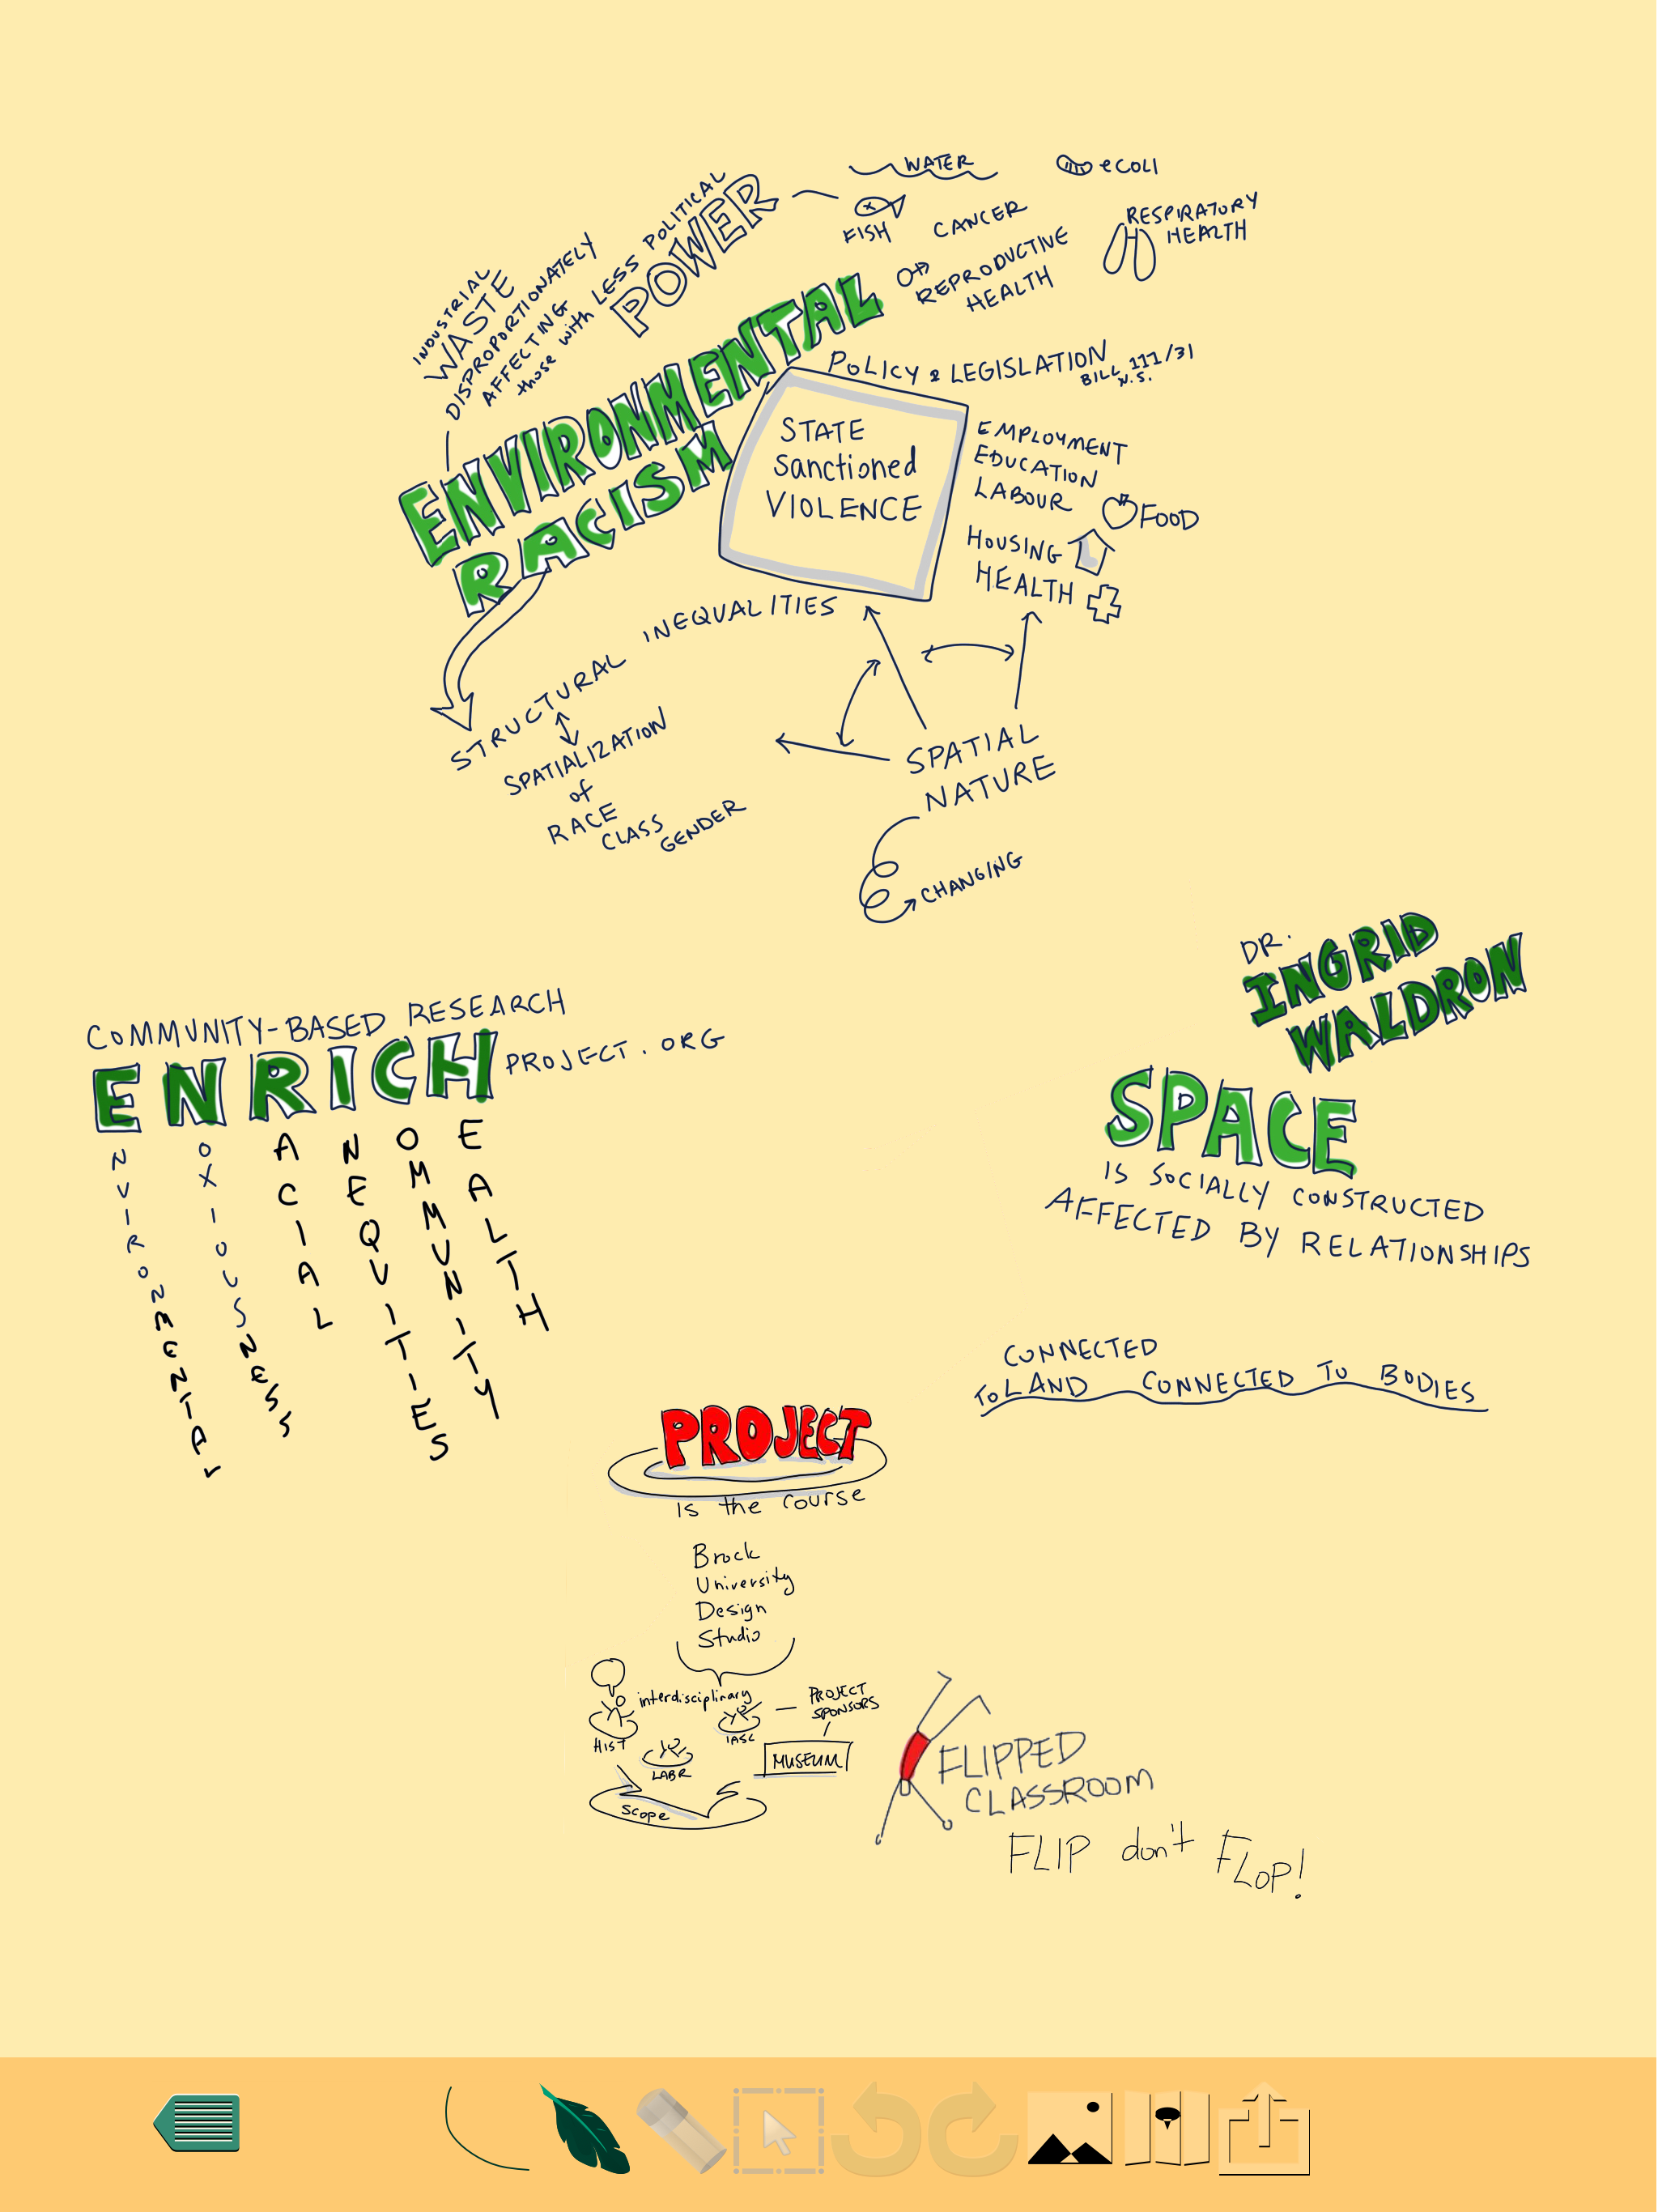 INDUSTRIAL
WASTE
DISPROPORTIONATELY
AFFECTING
those with LESS POLITICAL
POWER
WATER
eCOLI
FISH
CANCER
RESPIRATORY
HEALTH
REPRODUCTIVE
HEALTH
ENVIRONMENTAL
RACISM
POLICY & LEGISLATION
BILL 111/31
N.S.
STATE
Sanctioned
VIOLENCE
EMPLOYMENT
EDUCATION
LABOUR
FOOD
HOUSING
HEALTH
STRUCTURAL INEQUALITIES
SPATIALIZATION
of
RACE
CLASS
GENDER
SPATIAL
NATURE
CHANGING
DR.
INGRID
WALDRON
COMMUNITY-BASED RESEARCH
ENRICH PROJECT.ORG
ENVIRONMENTAL
NOXIOUSNESS
RACIAL
INEQUITIES
COMMUNITY
HEALTH
SPACE
IS SOCIALLY CONSTRUCTED
AFFECTED BY RELATIONSHIPS
CONNECTED
TO LAND CONNECTED TO BODIES
PROJECT
is the course
Brock
University
Design
Studio
interdisciplinary
PROJECT
SPONSORS
HIST
IASC
LABR
MUSEUM
Scope
FLIPPED
CLASSROOM
FLIP don't FLOP!